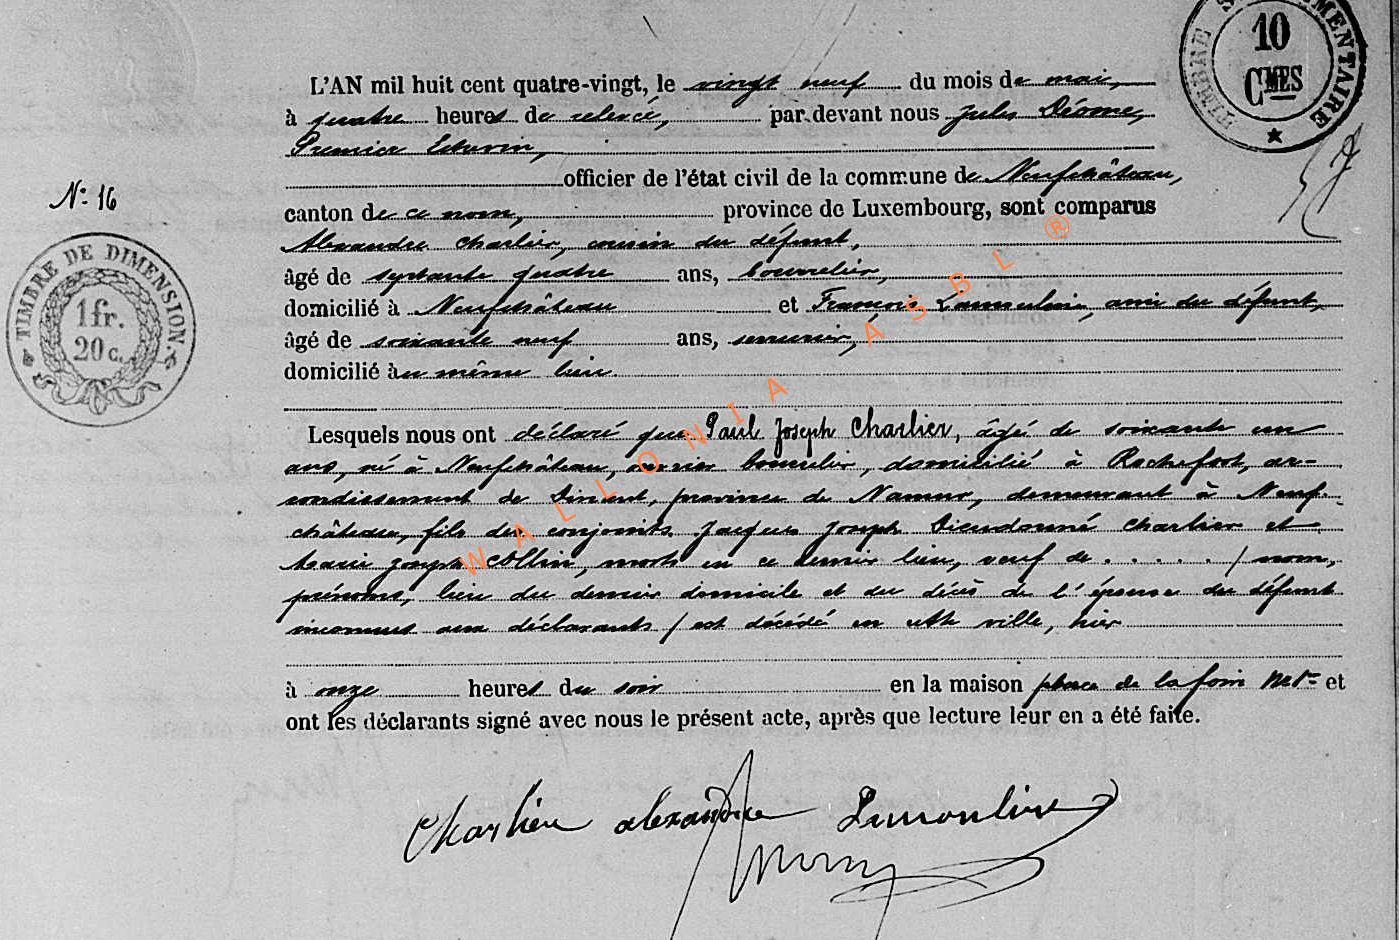 TIMBRE SUPPLÉMENTAIRE
10
CMES
L'AN mil huit cent quatre-vingt, le vingt neuf du mois de mai,
à quatre heures de relevé, par devant nous Jules Dérome,
Premier Echevin,
officier de l'état civil de la commune de Neufchâteau,
Nº 16
canton de ce nom, province de Luxembourg, sont comparus
Alexandre Charlier, cousin du défunt,
âgé de septante quatre ans, bourrelier,
domicilié à Neufchâteau et François Lamouline, ami du défunt,
âgé de soixante neuf ans, serrurier,
domicilié au même lieu.
TIMBRE DE DIMENSION
1fr.
20 c.
Lesquels nous ont déclaré que Paul Joseph Charlier, âgé de soixante un
ans, né à Neufchâteau, ouvrier bourrelier, domicilié à Rochefort, ar-
rondissement de Dinant, province de Namur, demeurant à Neuf-
château, fils des conjoints Jacques Joseph Dieudonné Charlier et
Marie Joseph Collin, morts en ce dernier lieu, veuf de . . . . . / nom,
prénoms, lieu du dernier domicile et du décès de l'épouse du défunt
inconnus aux déclarants / est décédé en cette ville, hier
à onze heures du soir en la maison place de la foire et
ont les déclarants signé avec nous le présent acte, après que lecture leur en a été faite.
Charlier alexandre Lamouline
WALLONIA ASBL ®